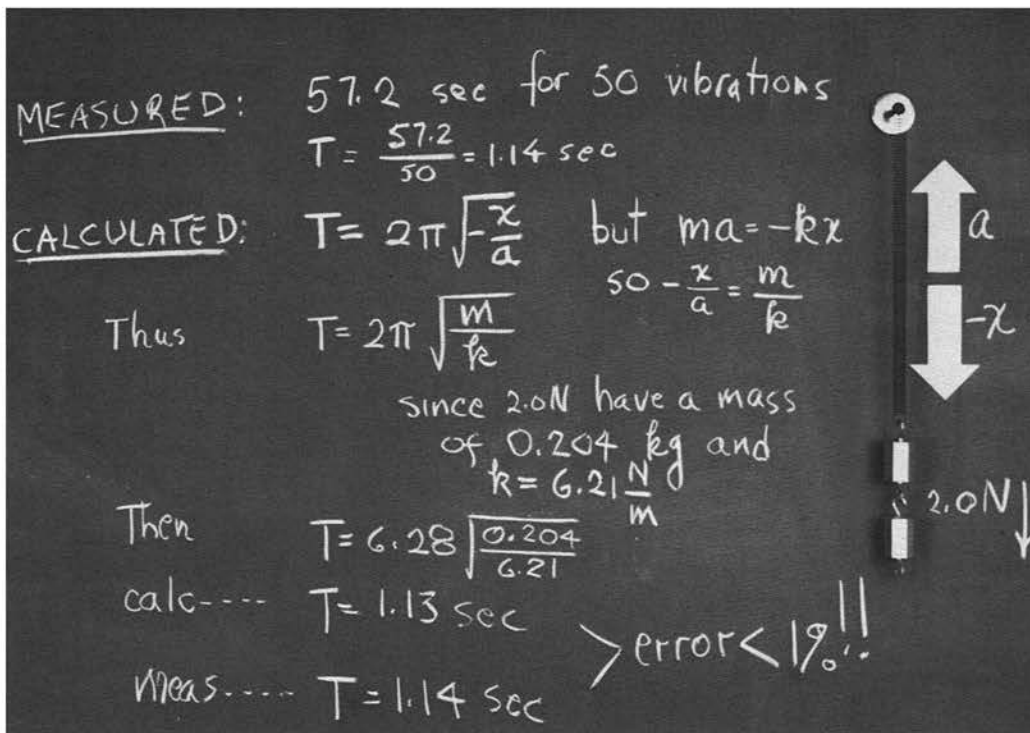 MEASURED: 57.2 sec for 50 vibrations
T = 57.2/50 = 1.14 sec
CALCULATED: T = 2π √(-x/a) but ma = -kx
50 - x/a = m/k
Thus T = 2π √(m/k)
since 2.0N have a mass
of 0.204 kg and
k = 6.21 N/m
Then T = 6.28 √(0.204/6.21)
calc---- T = 1.13 sec
> error < 1% !!!
meas..... T = 1.14 sec
a
-x
2.0N ↓